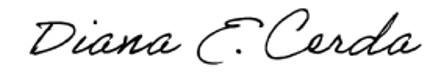 Diana E. Cerda